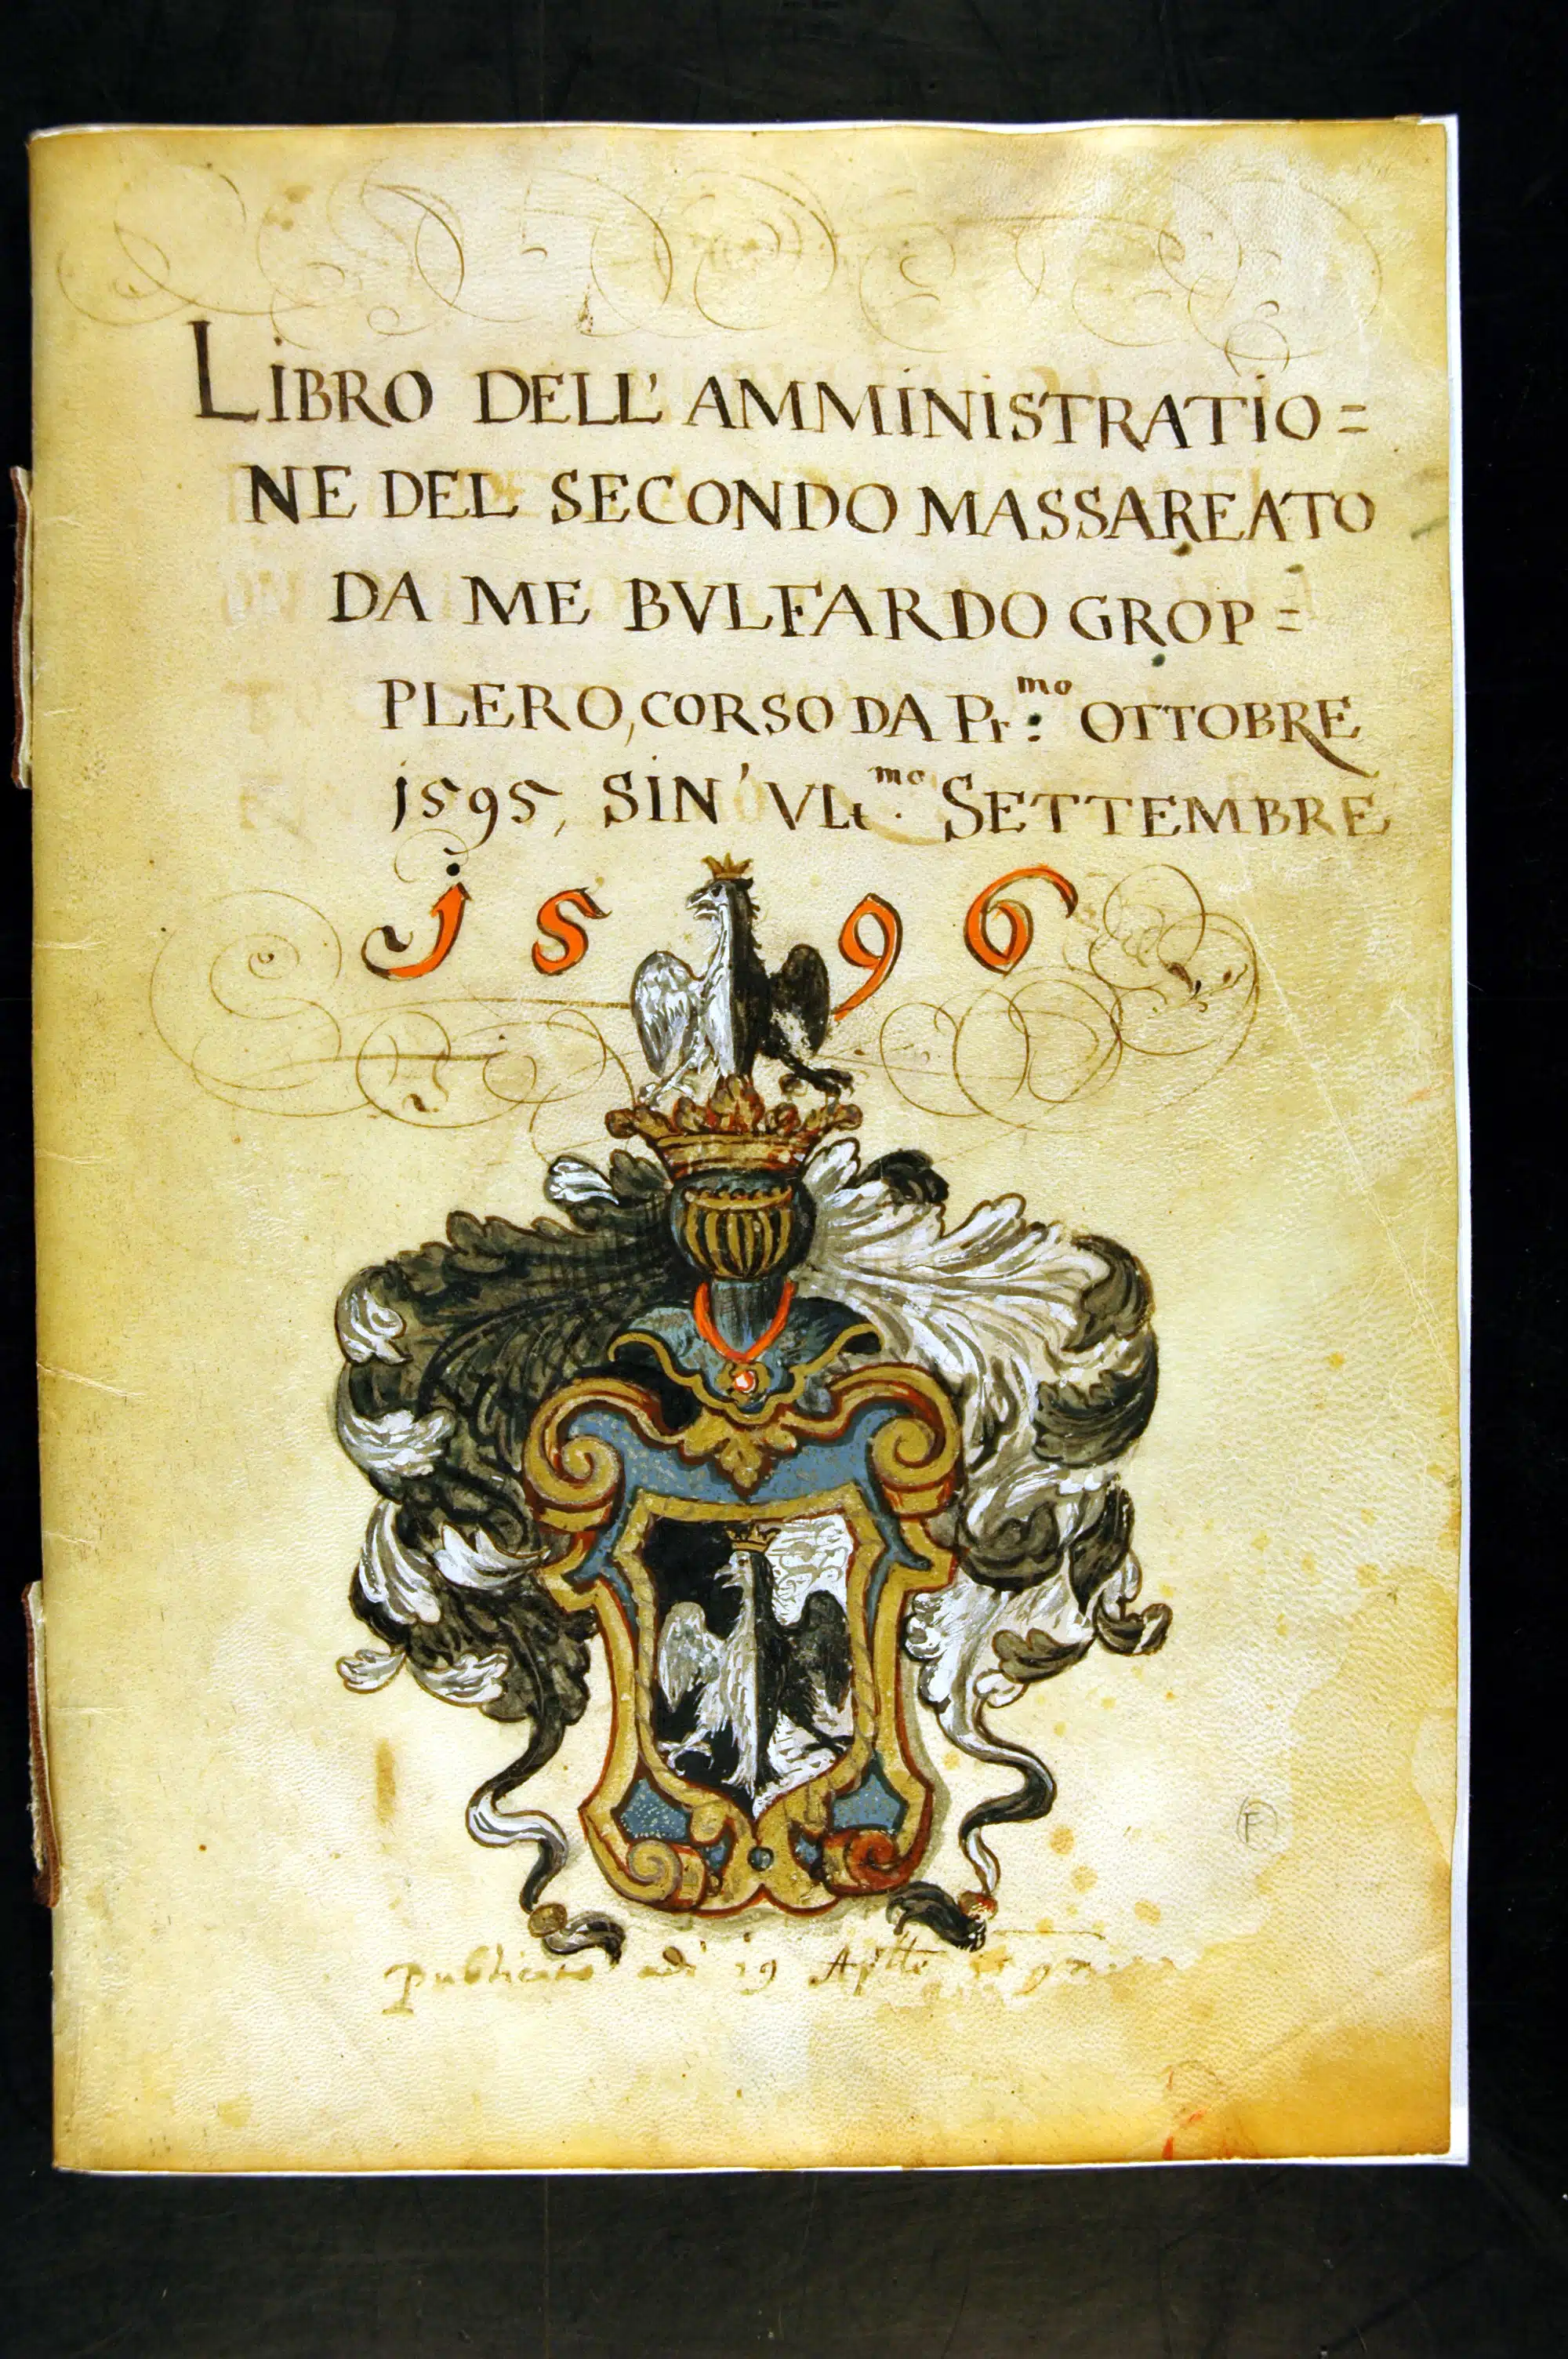 LiBRO DELL' AMMiNiSTRATiO=
NE DEL SECONDO MASSAREATO
DA ME BVLFARDO GROP=
PLERO, CORSO DA Pr:mo OTTOBRE
j595, SiN' VLt.mo SETTEMBRE
j596
publicato adi 19
F